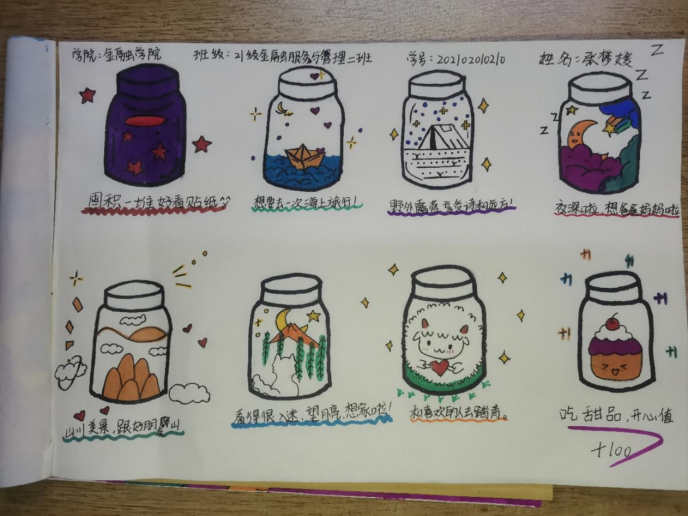 学院:金融学院 班级:21级金融服务与管理二班 学号:202102010210 姓名:
z
z
z
z
z
囤积一堆好看贴纸
想要去一次海上旅行!
野外露营 去发诗和远方!
夜深啦 想爸爸妈妈啦
山川美景,跟好朋爬山
看得很入迷,望月亮,想家啦!
和喜欢的人去踏青。
吃甜品,开心值
+100